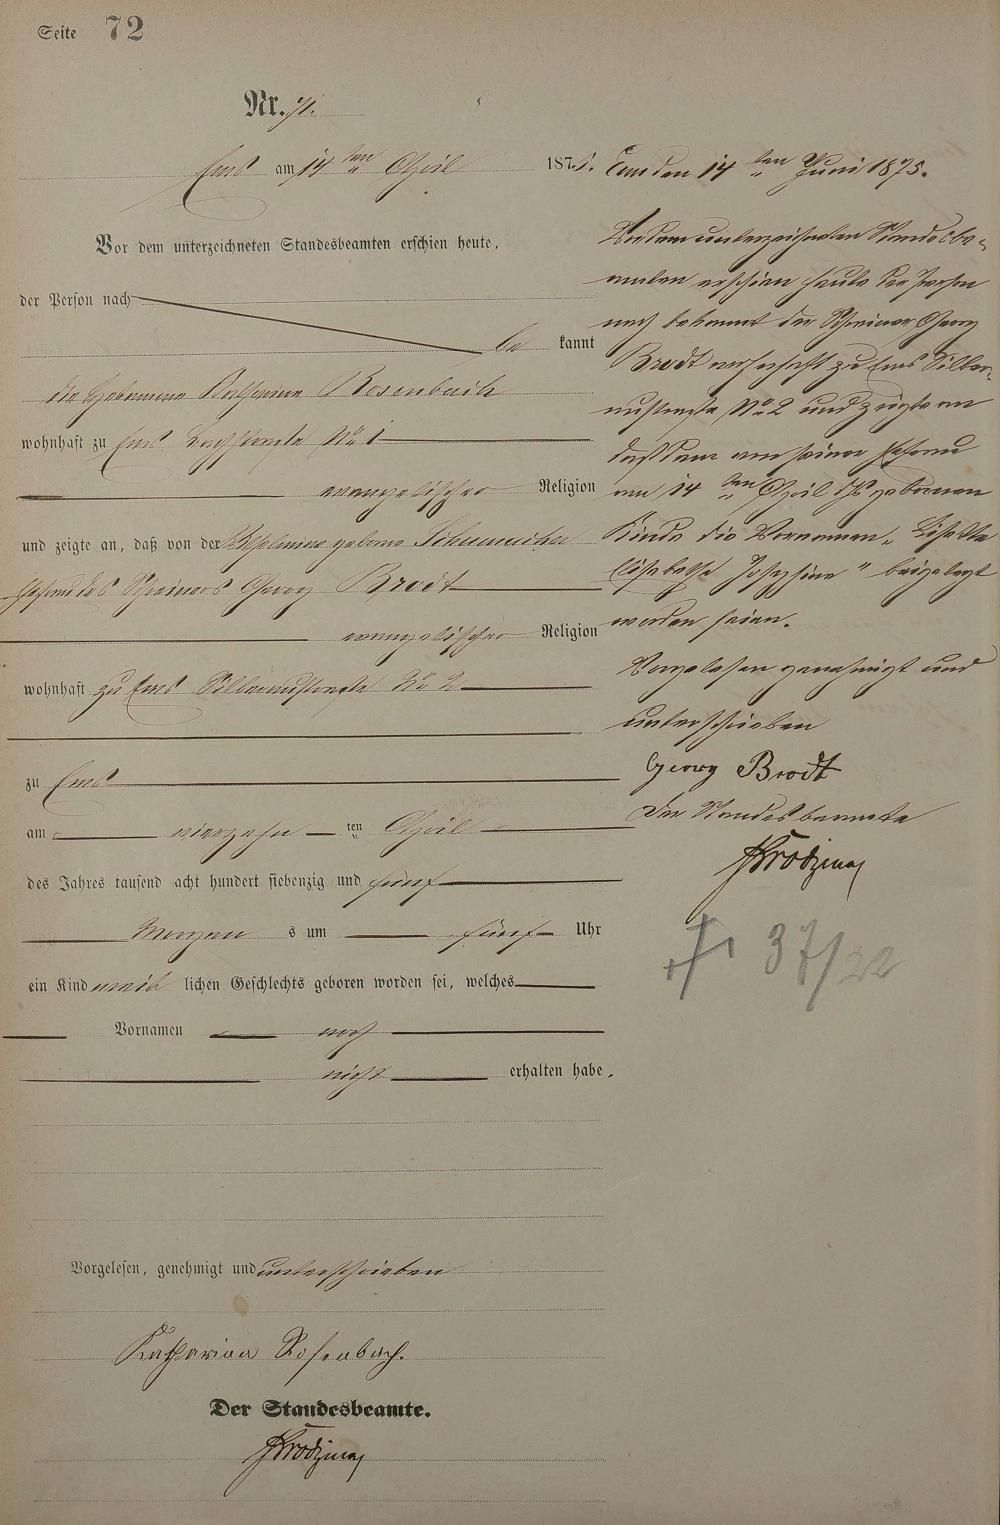 Seite 72
Nr. 71.
Ems am 14ten April 1875.
Vor dem unterzeichneten Standesbeamten erschien heute,
der Person nach
be kannt
die Hebamme Katharina Rosenbach
wohnhaft zu Ems No 1
evangelischer Religion
und zeigte an, daß von der Wilhelmine geborne Schumacher
Ehefrau des Schreiners Georg Brodt
evangelischer Religion
wohnhaft zu Ems Silberaustraße No 2
zu Ems
am vierzehn ten April
des Jahres tausend acht hundert siebenzig und fünf
Morgen s um fünf Uhr
ein Kind weib lichen Geschlechts geboren worden sei, welches
Vornamen noch
nicht erhalten habe.
Vorgelesen, genehmigt und unterschrieben
Katharina Rosenbach.
Der Standesbeamte.
Ems den 14ten Juni 1875.
Vor dem unterzeichneten Standesbe-
amten erschien heute der Person
nach bekannt der Schreiner Georg
Brodt wohnhaft zu Ems Silber-
austraße No 2 und zeigte an
daß dem von seiner Ehefrau
am 14ten April ds Js geborenen
Kinde die Vornamen „
Elisabethe Josephine" beigelegt
worden seien.
Vorgelesen genehmigt und
unterschrieben
Georg Brodt
Der Standesbeamte
37/22